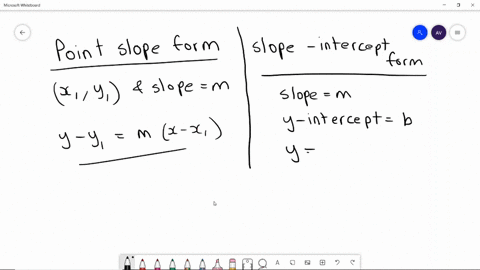 Microsoft Whiteboard
AV
Point slope form
(x₁, y₁) & slope = m
y - y₁ = m (x - x₁)
slope - intercept
form
slope = m
y - intercept = b
y =